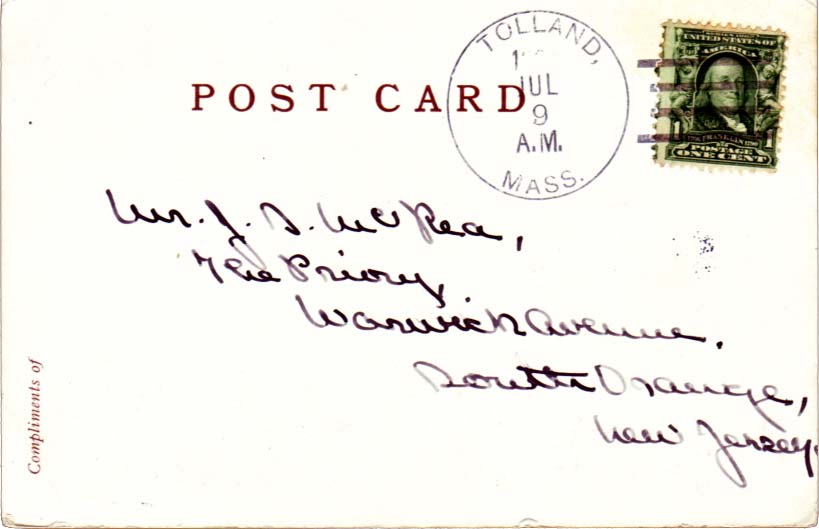 POST CARD
TOLLAND,
JUL
9
A.M.
MASS.
SERIES 1902
UNITED STATES OF
AMERICA
1 FRANKLIN 1
POSTAGE
ONE CENT
Mr. J. S. McRea,
The Priory,
Warwick Avenue.
South Orange,
New Jersey.
Compliments of